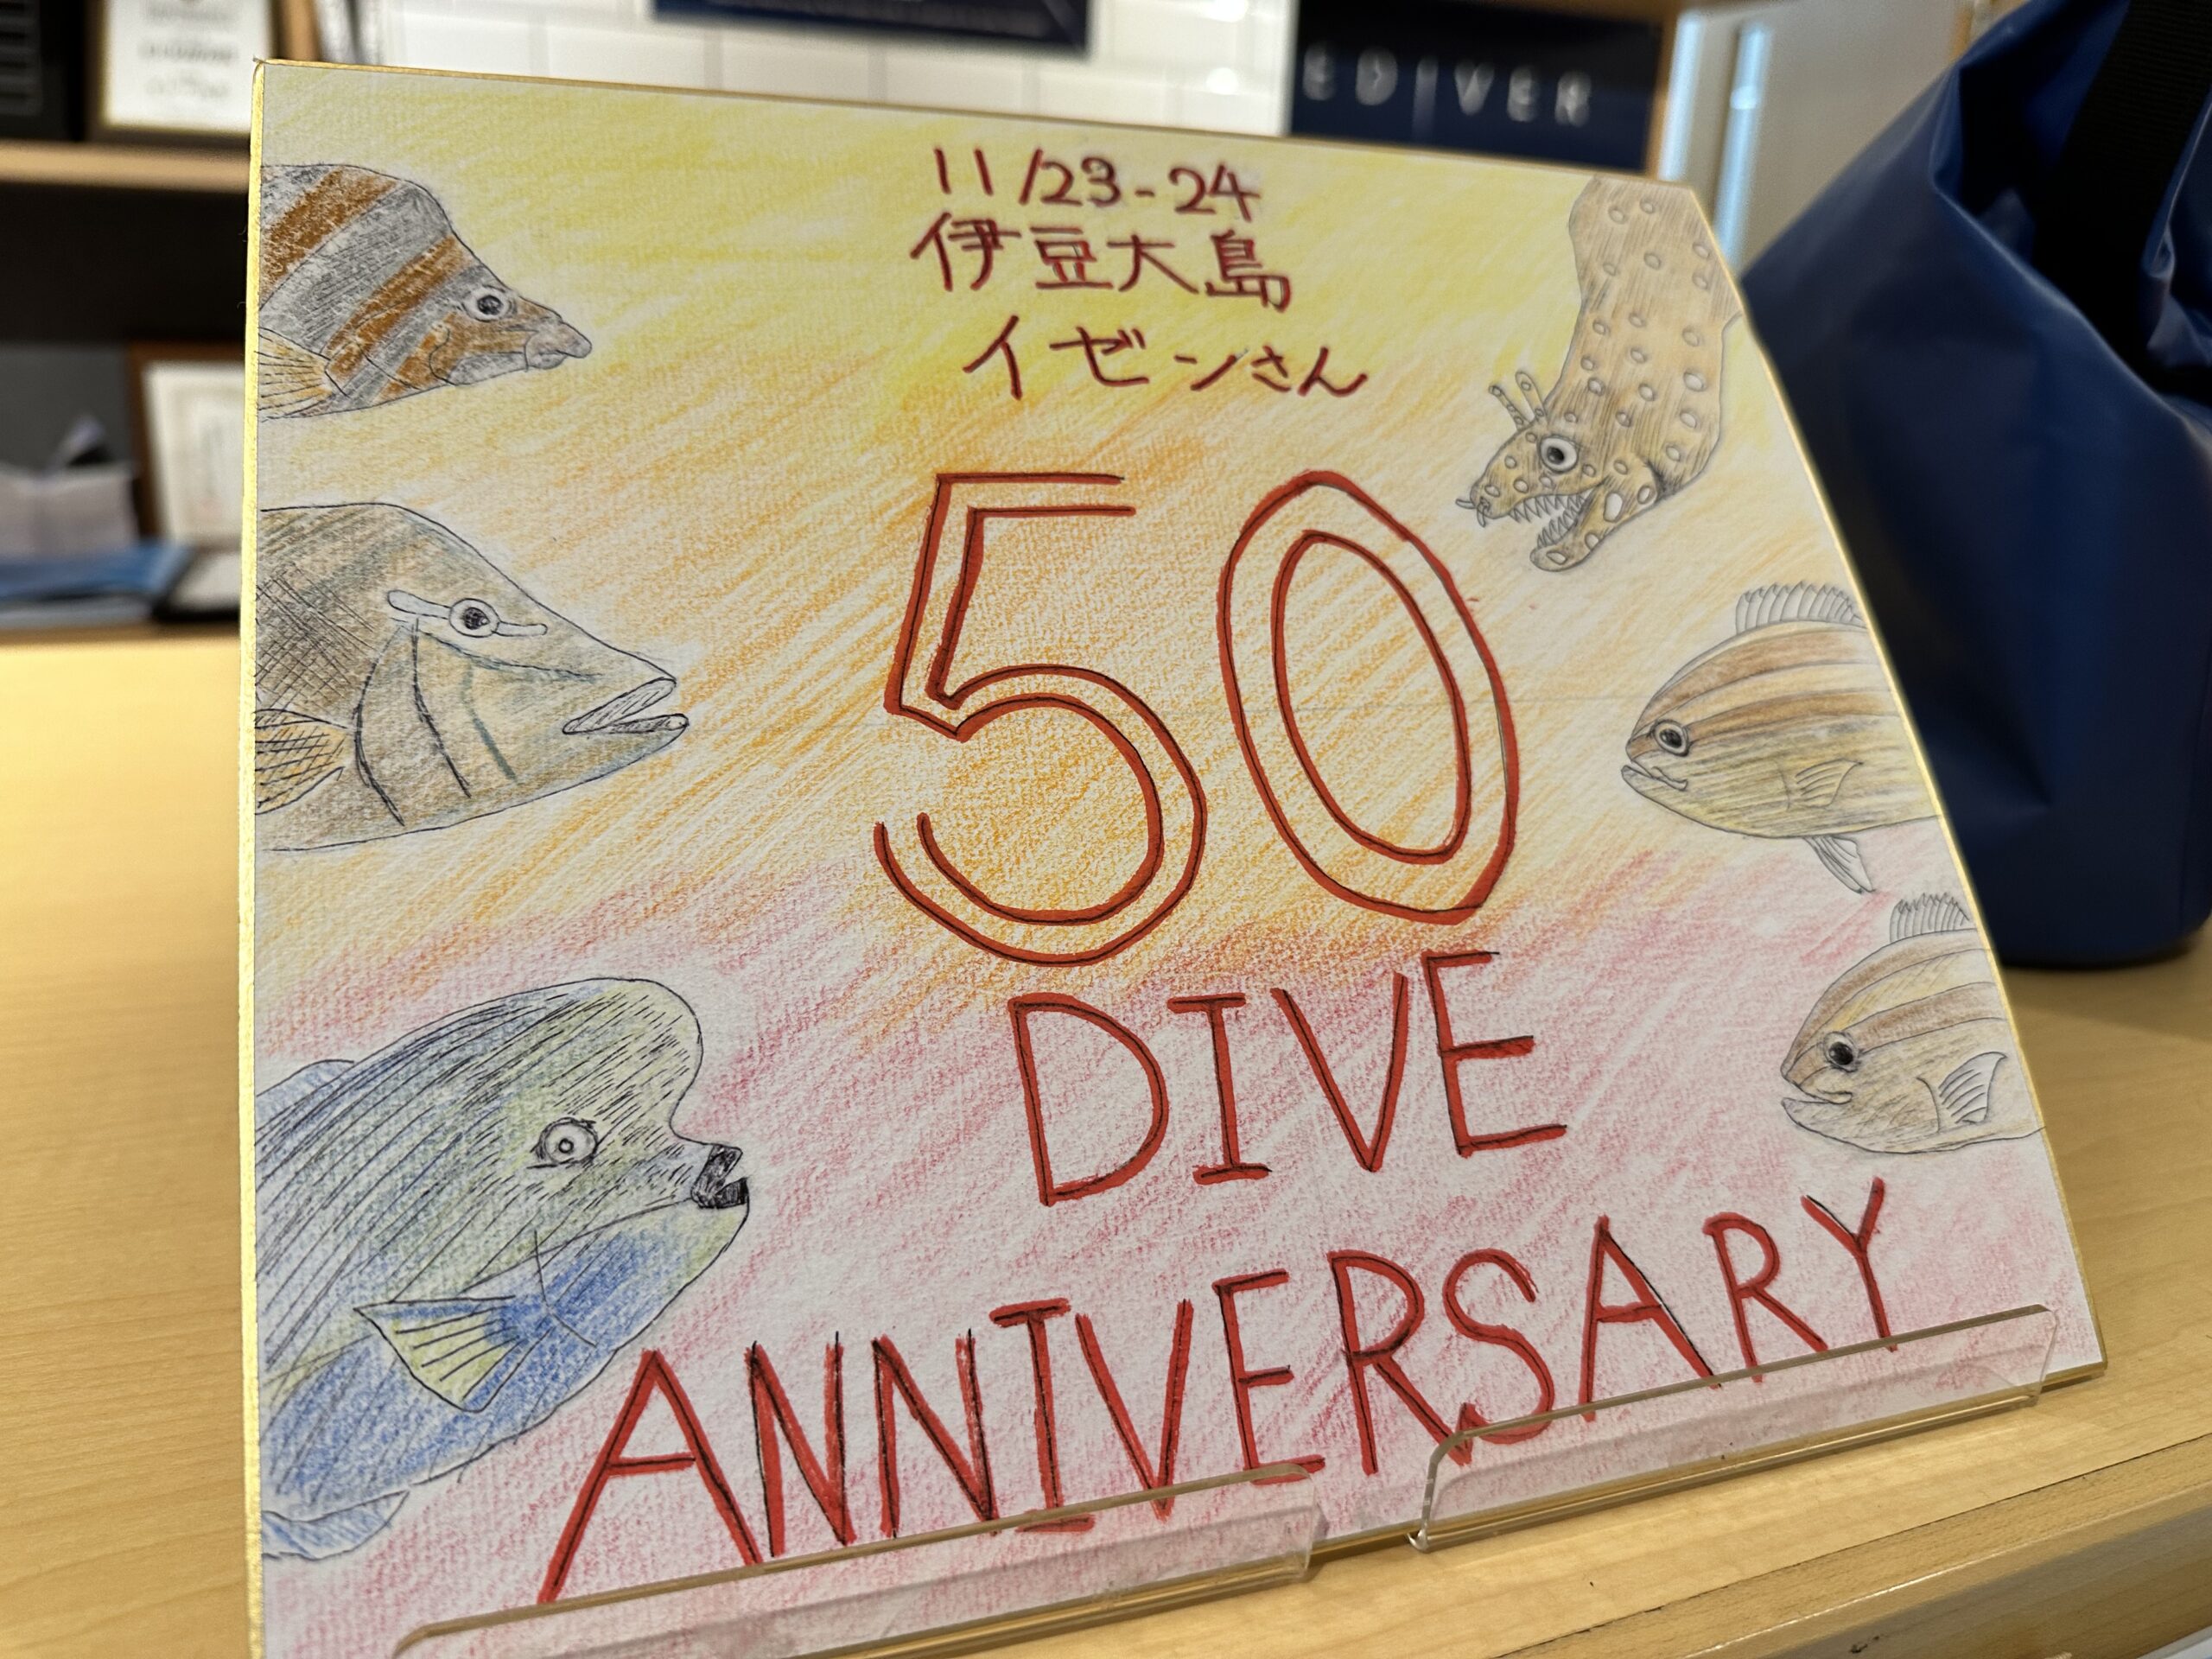 EDIVER
11/23-24
伊豆大島
イゼンさん
50
DIVE
ANNIVERSARY